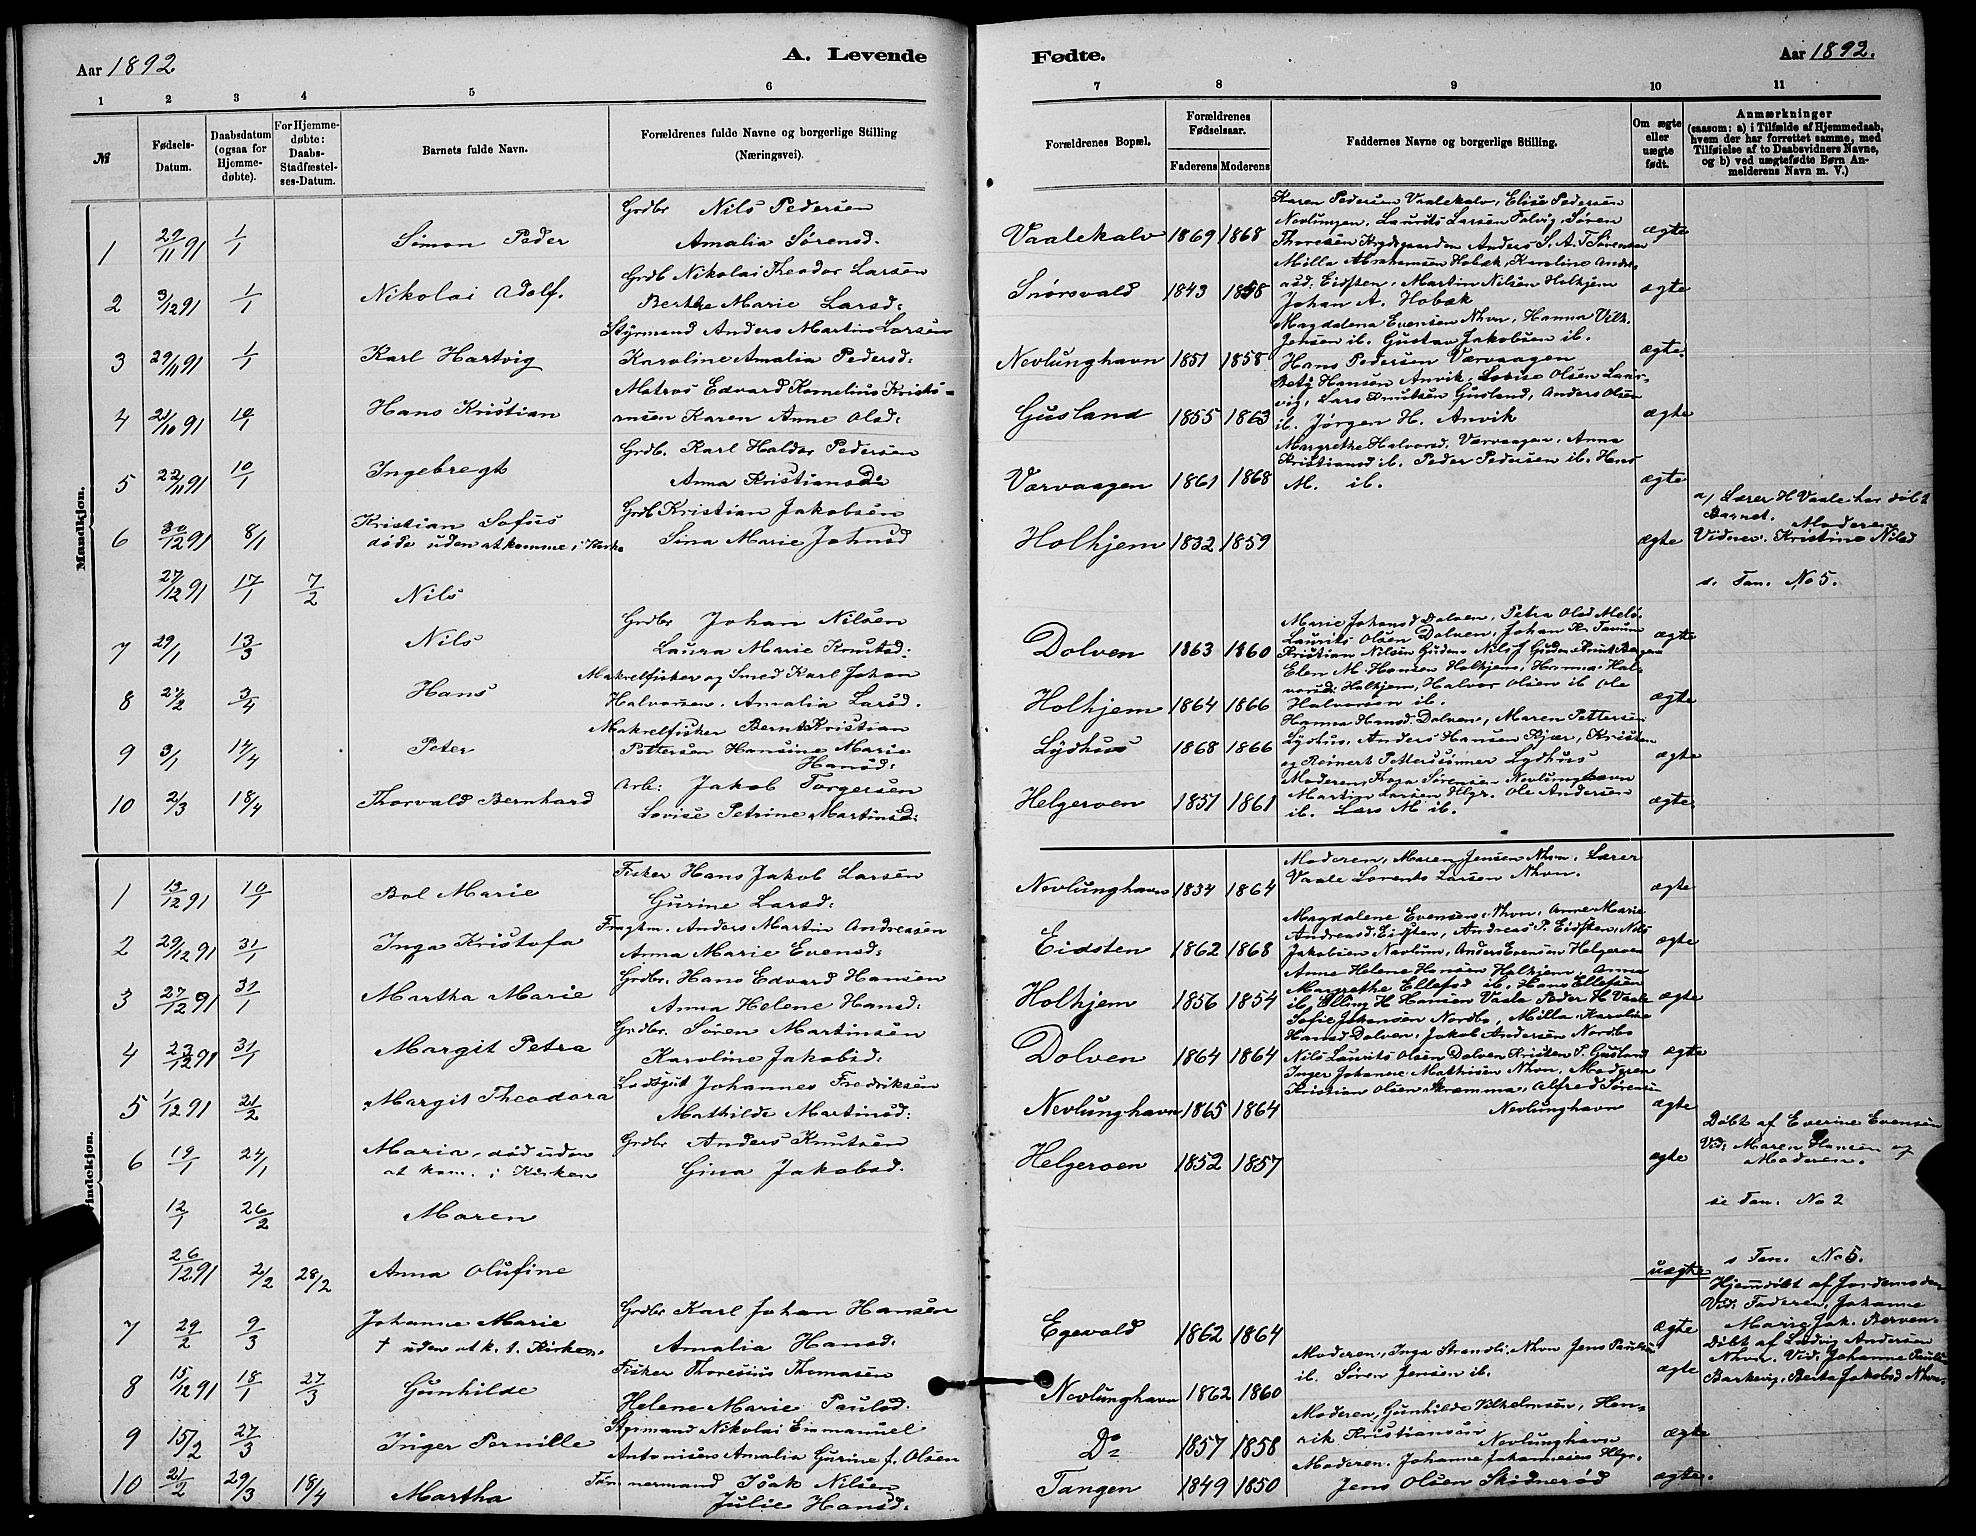 Aar 1892
A. Levende
1 2 3 4 5 6
№
Fødsels-Datum.
Daabsdatum (ogsaa for Hjemme-døbte).
For Hjemme-døbte: Daabs-Stadfæstel-ses-Datum.
Barnets fulde Navn.
Forældrenes fulde Navne og borgerlige Stilling (Næringsvei).
Mandkjøn.
1 29/11 91 1/1 Simon Peder Grdbr Nils Pedersen
Amalia Sørensd.
2 3/12 91 1/1 Nikolai Adolf. Grdb Nikolai Theodor Larsen
Berthe Marie Larsd:
3 29/11 91 1/1 Karl Hartvig Styrmand Anders Martin Larsen
Karoline Amalia Pedersd:
4 21/10 91 Hans Kristian Matros Edvard Kornelius Kristi-
ansen Karen Anne Olsd:
5 22/11 91 10/1 Ingebregt Grdb. Karl Haldor Pedersen
Anna Kristiansd:
6 30/12 91 8/1 Kristian Sofus Grdb Kristian Jakobsen
døde uden at komme i Kirke Sina Marie Johnsd
27/12 91 17/1 7/2 Nils
7 29/1 13/3 Nils Grdbr Johan Nilsen
Laura Marie Knutsd:
8 24/2 3/4 Hans Makrelfisker og Smed Karl Johan
Halvorsen. Amalia Larsd.
9 3/1 14/4 Peter Makrelfisker Bernt Kristian
Pettersen Hansine Marie
Hansd:
10 2/3 18/4 Thorvald Bernhard Arb: Jakob Torgersen
Lovise Petrine Martinsd:
Kvindekjøn.
1 13/12 91 10/1 Bol Marie Fisker Hans Jakob Larsen
Gurine Larsd:
2 29/12 91 31/1 Inga Kristofa Fragtm. Anders Martin Andreasen
Anna Marie Evensd:
3 27/12 91 31/1 Martha Marie Grdbr. Hans Edvard Hansen
Anna Helene Hansd:
4 23/12 91 31/1 Margit Petra Grdbr. Søren Martinsen
Karoline Jakobsd:
5 1/12 91 21/2 Margit Theodora Lodsgut Johannes Fredriksen
Mathilde Martinsd:
6 19/1 24/1 Maria, død uden Grdbr Anders Knutsen
at kom. i Kirken Gina Jakobsd.
12/1 26/2 Maren
26/12 91 2/2 28/2 Anna Olufine
7 29/2 9/3 Johanne Marie Grdbr Karl Johan Hansen
† uden at k. t. Kirken. Amalia Hansd:
8 15/12 91 18/1 27/3 Gunhilde Fisker Thoresius Thomasen
Helene Marie Paulsd.
9 15/2 27/3 Inger Pernille Styrmand Nikolai Emmanuel
Antonisen Amalia Gurine f. Olsen
10 21/2 29/3 18/4 Martha Tømmermand Isak Nilsen
Julie Hansd:
Fødte.
Aar 1892.
7 8 9 10 11
Forældrenes Bopæl.
Forældrenes Fødselsaar.
Faderens Moderens
Faddernes Navne og borgerlige Stilling.
Om ægte eller uægte født.
Anmærkninger
(saasom: a) i Tilfælde af Hjemmedaab, hvem der har forrettet samme, med Tilføielse af to Daabsvidners Navne, og b) ved uægtefødte Børn Anmelderens Navn m. V.)
Karen Pedersen Vaalekalv, Elise Pedersen
Nevlungen, Laurits Larsen Talvig, Søren
Vaalekalv 1869 1868 Thoresen Anders S. A. T Sørensen ægte
Mølla Abrahamsen Hobæk, Karoline Andre-
Snorsvald 1843 1858 asd: Eidsten, Martin Nilsen Holhjem ægte
Johan A. Hobæk
Magdalena Evensen Nhvn, Hanna Vilh.
Jensen ib. Gustav Jakobsen ib.
Nevlunghavn 1851 1858 Hans Pedersen Værvaagen ægte.
Bety Hansen Anvik, Lovise Olsen Laur-
vig, Lars Knutsen Gusland, Anders Olsen
Gusland 1855 1863 ib. Jørgen H. Anvik ægte
Margrethe Halvorsd. Værvaagen, Anna
Kristiansd ib. Peder Pedersen ib. Hans
Værvaagen 1861 1868 M. ib. ægte
a/ Lærer H Vaale har døbt
Barnet. Moderen
Holhjem 1832 1859 ægte Vidner: Kristine Nilsd
s. Tan. No 5.
Marie Johansd Dolven, Petra Olsd Melø
Laurits Olsen Dolven, Johan Kr. Tanum
Dolven 1863 1860 Kristian Nilsen Gudm Nils J Gudm ægte
Elen M. Hansen Holhjem, Hanna Hal-
vorsd: Holhjem, Halvor Olsen ib Ole
Holhjem 1864 1866 Halvorsen ib. ægte
Hanna Hansd: Dolven, Maren Pettersen
Lydhus 1868 1866 Lydhus, Anders Hansen Kjær, Kristen
og Reinert Petterssønner Lydhus ægte
Moderen, Thora Sørensen Nevlunghavn
Helgeroen 1851 1861 Martin Larsen Hlgr. Ole Andersen ægte
ib. Lars M ib.
Moderen, Maren Jensen Nhvn. Lærer
Nevlunghavn 1834 1864 Vaale Lorents Larsen Nhvn. ægte
Magdalene Evensen, Nhvn, Anne Marie
Andreasd. Eidsten, Andreas P. Eidsten, Nils
Eidsten 1862 1868 Jakobsen Nevlun, Anders Evensen Helgeroen ægte
Anne Helene Hansen Holhjem, Anna
Margrethe Ellefsd ib. Hans Ellefsen
Holhjem 1856 1854 ib. Elling H Hansen Vaale Peder H Vaale ægte
Sofie Johansen Nordbo, Milla Karoline
Hansd Dolven, Jakob Andersen Nordbo
Dolven 1864 1864 Nils Laurits Olsen Dolven Kristen P. Gusland ægte
Inger Johanne Mathisen Nhvn, Moderen
Kristian Olsen Kramma, Alfred Sørensen
Nevlunghavn 1865 1864 Nevlunghavn ægte
Døbt af Everine Evensen
Vid: Maren Hansen og
Helgeroen 1852 1857 ægte Moderen.
se Tan. No 2
s Tan. No 5.
uægte
Hjemdøbt af Jordemoderen
Vid: Faderen, Johanne
Egevald 1862 1864 ægte Marie Jak. Berven.
Moderen, Inga Strandli, Nhvn Jens Paulsen
ib. Søren Jensen ib.
Døbt af Ludvig Andersen
Nhvn. Vid: Johanne Pauls
Nevlunghavn 1862 1860 ægte Barkevig, Berta Jakobsd Nhvn.
Moderen, Gunhilde Vilhelmsen, Hen-
Do 1857 1858 rik Kristiansen Nevlunghavn ægte
Moderen. Johanne Johannesen Hlgr.
Tangen 1849 1850 Jens Olsen Skidnerød ægte.